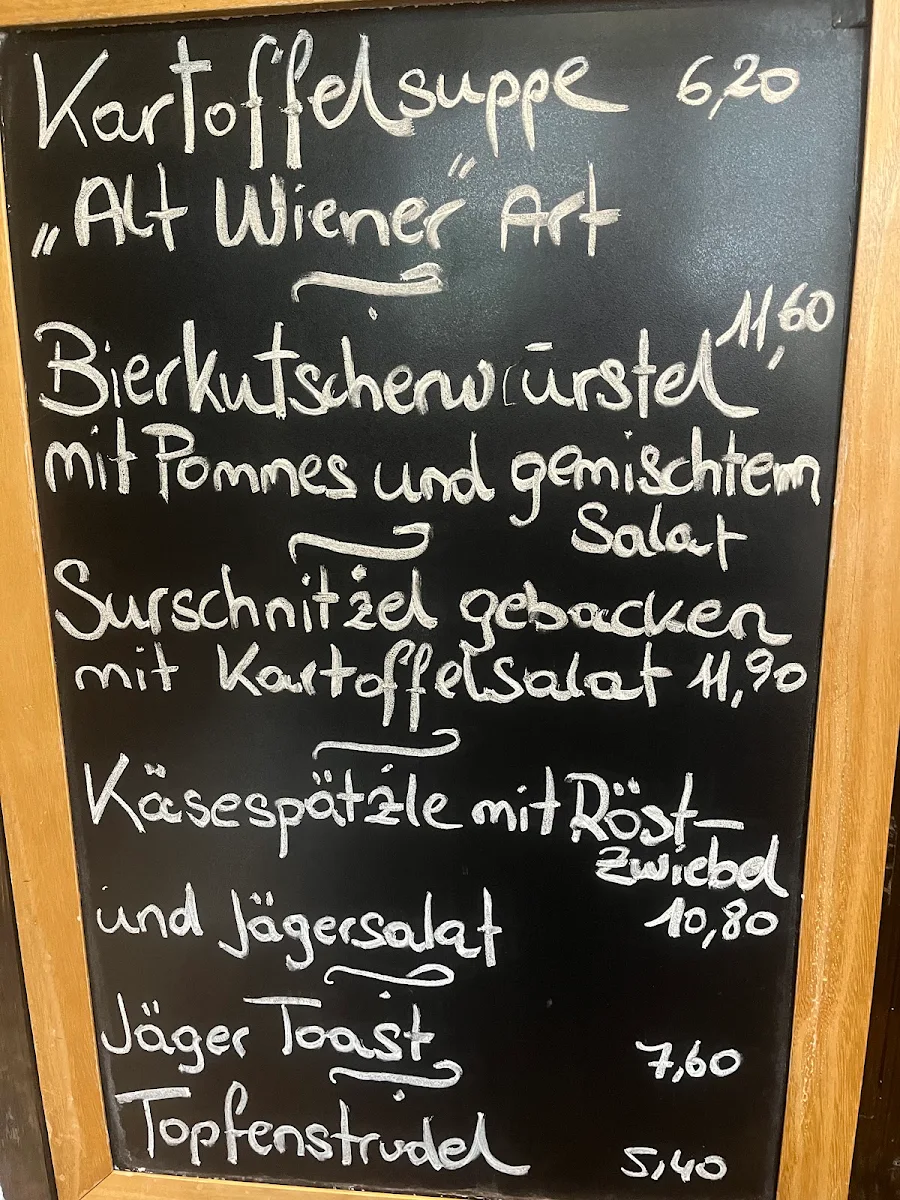 Kartoffelsuppe 6,20
„Alt Wiener" Art
11,60
Bierkutscherwürstel
mit Pommes und gemischtem
Salat
Surschnitzel gebacken
mit Kartoffelsalat 11,90
Käsespätzle mit Röst-
zwiebel
und Jägersalat 10,80
Jäger Toast 7,60
Topfenstrudel 5,40